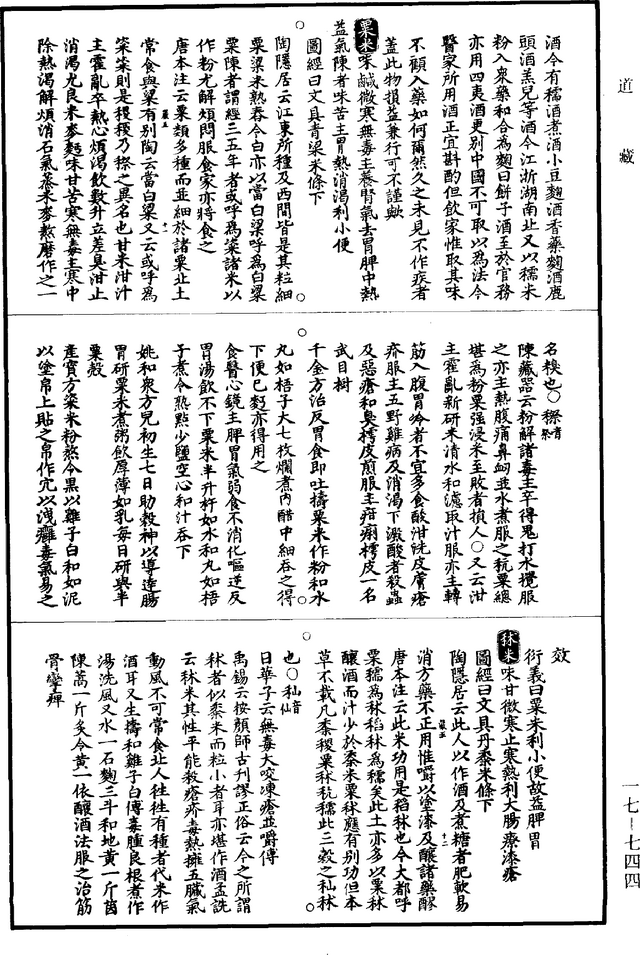 道藏
酒今有糯酒煮酒小豆麴酒香藥麴酒鹿
頭酒羔兒等酒今江浙湖南北又以糯米
粉入衆藥和合為麴曰餅子酒至於官務
亦用四夷酒更别中國不可取以為法今
醫家所用酒正宜斟酌但飲家惟取其味
不顧入藥如何爾然久之未見不作疾者
蓋此物損益兼行可不謹歟
粟米味鹹微寒無毒主養腎氣去胃脾中熱
益氣陳者味苦主胃熱消渴利小便
圖經曰文具青粱米條下
陶隱居云江東所種及西間皆是其粒細
於粱米熟舂令白亦以當白粱呼為白粱
粟陳者謂經三五年者或呼為粢諸米以
作粉尤解煩悶服食家亦將食之
唐本注云粟類多種而並細於諸粱北土
常食與粱有别陶云當白粱又云或呼為
粢粢則是稷稷乃穄之異名也甘米泔汁
主霍亂卒熱心煩渴飲數升立差臭泔止
消渴尤良米麥麨味甘苦寒無毒主寒中
除熱渴解煩消石氣蒸米麥熬磨作之一
名糗也○穄音祭
陳藏器云粉解諸毒主卒得鬼打水攪服
之亦主熱腹痛鼻衂並水煮服之秔粟總
堪為粉粟强浸米至敗者損人○又云泔
主霍亂新研米清水和濾取汁服亦主轉
筋入腹胃冷者不宜多食酸泔洗皮膚瘡
疥服主五野雞病及消渴下澱酸者殺蟲
及惡瘡和臭樗皮煎服主疳痢樗皮一名
武目樹
千金方治反胃食即吐擣粟米作粉和水
丸如梧子大七枚爛煮内醋中細吞之得
下便已麪亦得用之
食醫心鏡主脾胃氣弱食不消化嘔逆反
胃湯飲不下粟米半升杵如水和丸如梧
子煮令熟點少鹽空心和汁吞下
姚和衆方兒初生七日助穀神以導達腸
胃研粟米煮粥飲厚薄如乳每日研與半
粟殼
產寶方粢米粉熬令黒以雞子白和如泥
以塗帛上貼之帛作穴以洩癰毒氣易之
效
衍義曰粟米利小便故益脾胃
秫米味甘微寒止寒熱利大腸療漆瘡
圖經曰文具丹黍米條下
陶隱居云此人以作酒及煮糖者肥軟易
消方藥不正用惟嚼以塗漆及釀諸藥醪
唐本注云此米功用是稻秫也今大都呼
粟糯為秫稻秫為糯矣此土亦多以粟秫
釀酒而汁少於黍米粟秫應有别功但本
草不載凡黍稷粟秫秔糯此三穀之籼秫
也○籼音仙
日華子云無毒犬咬凍瘡並嚼傅
禹錫云按顔師古刊謬正俗云今之所謂
秫者似黍米而粒小者耳亦堪作酒孟詵
云秫米其性平能殺瘡疥毒熱擁五臓氣
動風不可常食北人往往有種者代米作
酒耳又生擣和雞子白傅毒腫良根煮作
湯洗風又水一石麴三斗和地黄一斤茵
陳蒿一斤炙令黄一依釀酒法服之治筋
骨攣痺
一七—七四四